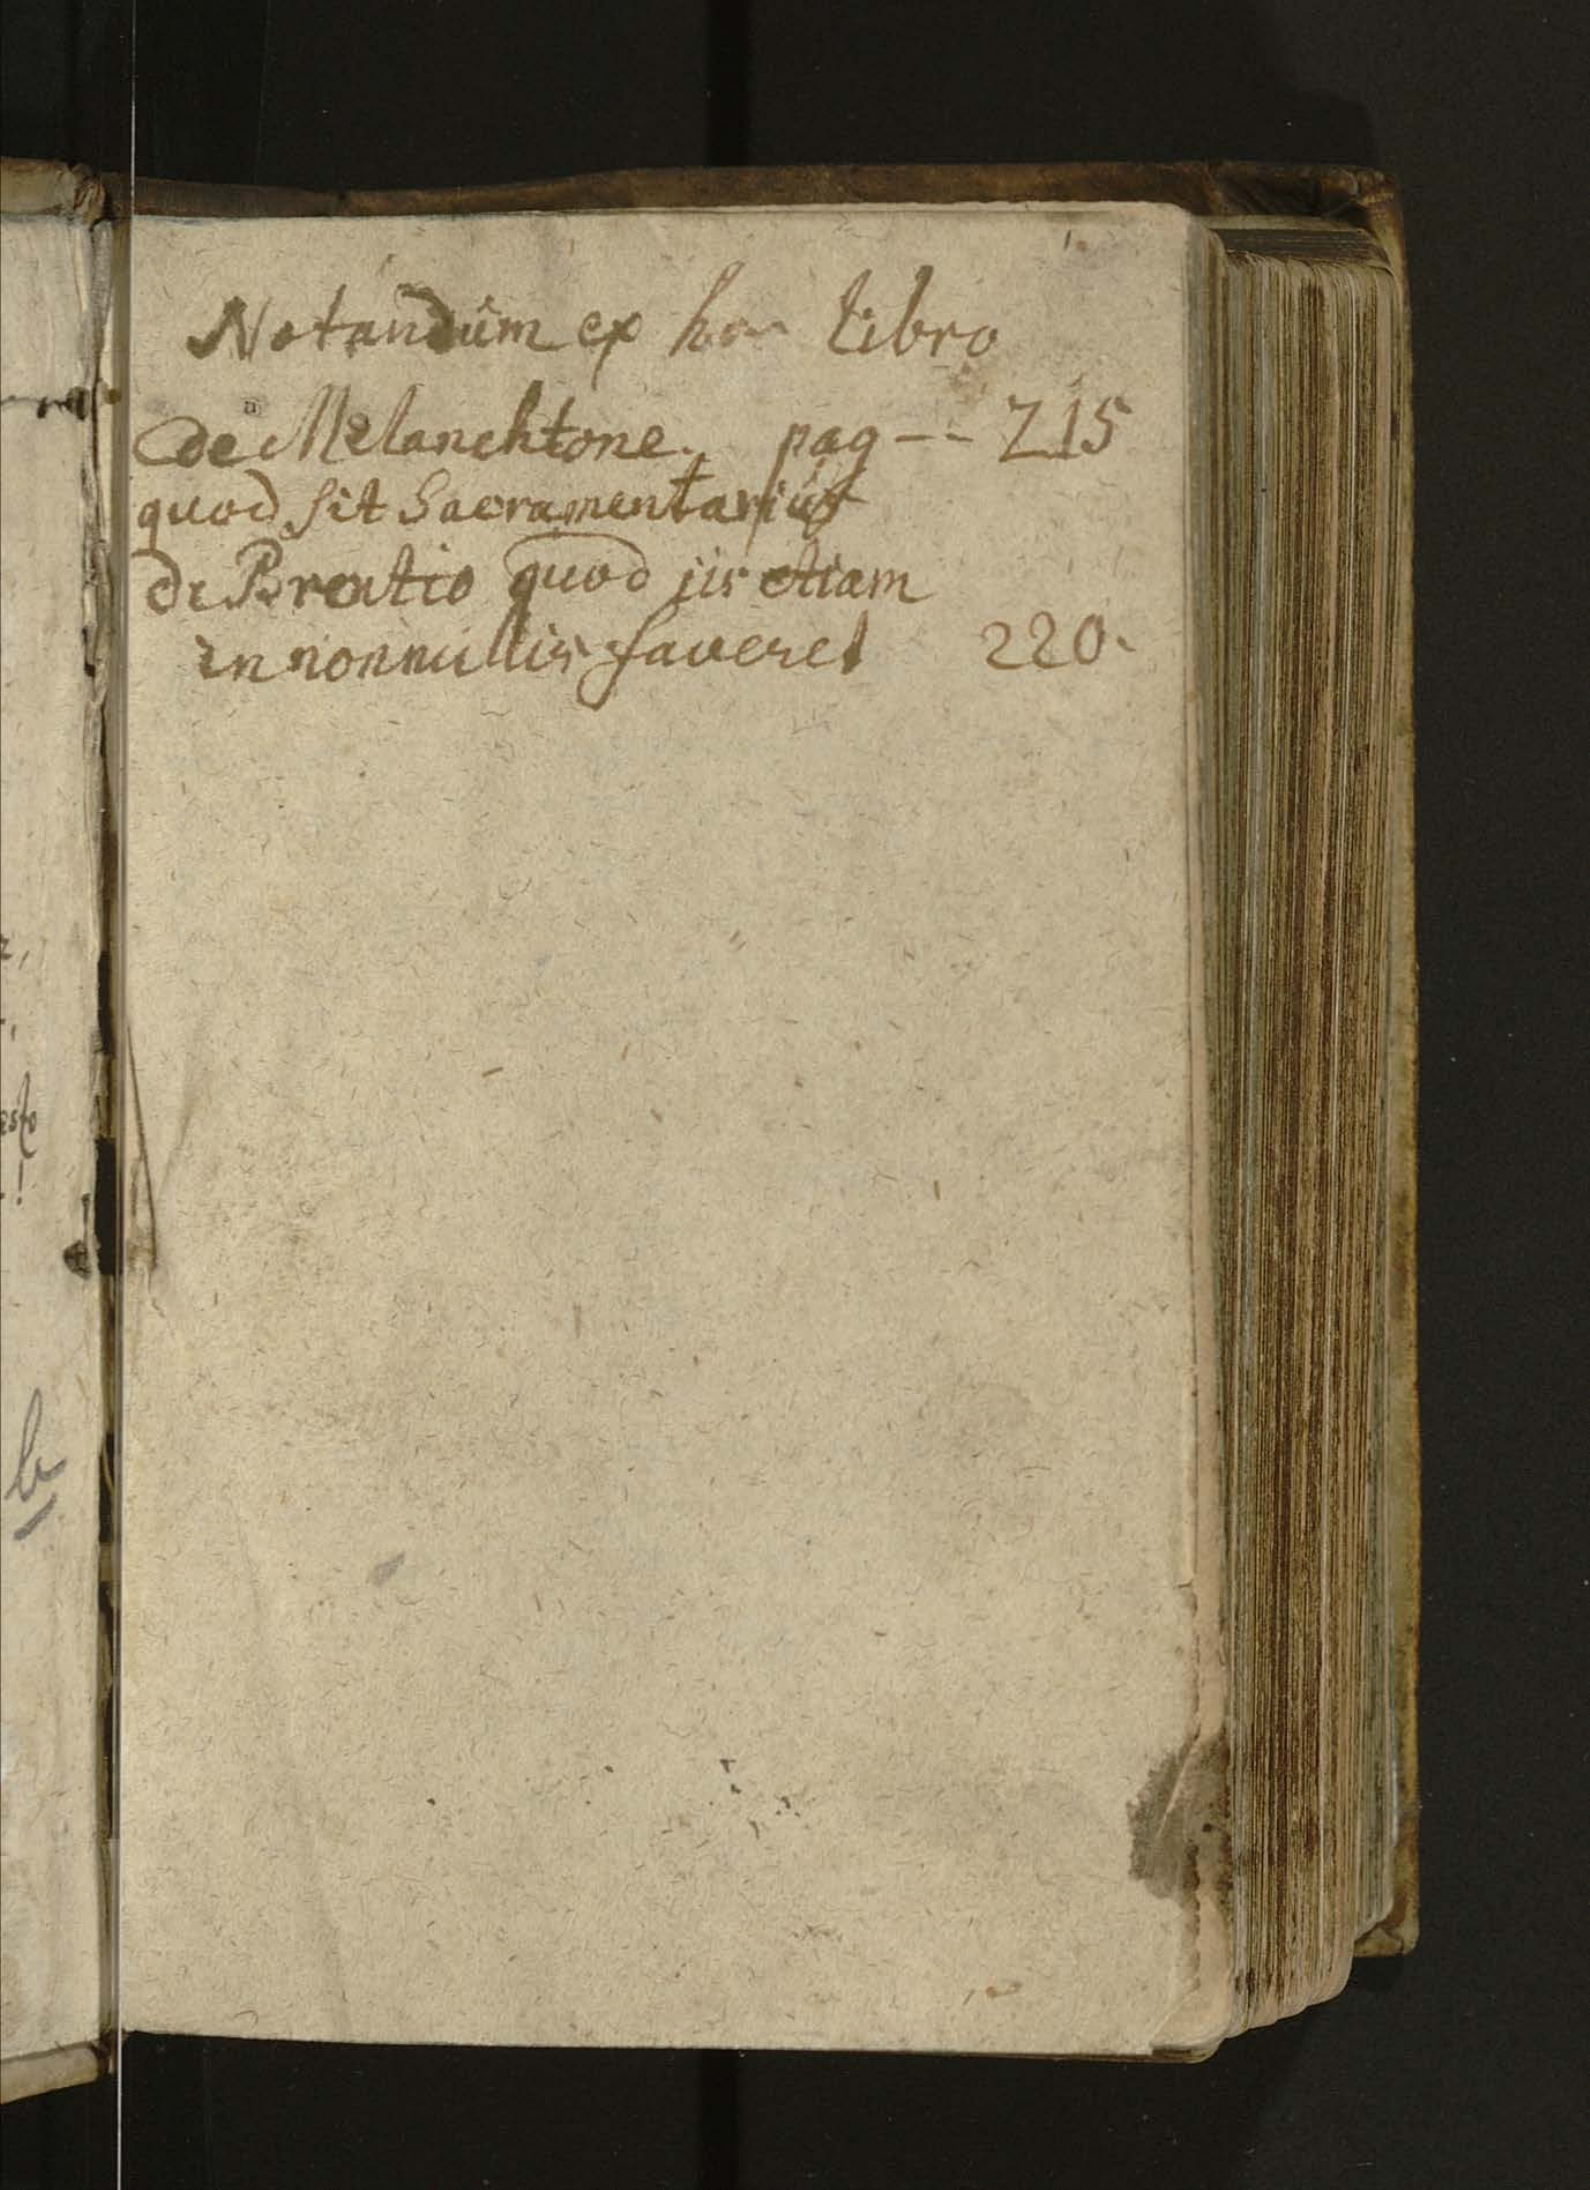 Notandum ex hoc libro
de Melanchtone. pag -- 215
quod sit Sacramentarius
de Brentio quod iis etiam
in nonnullis faveret 220.
esto
!
b